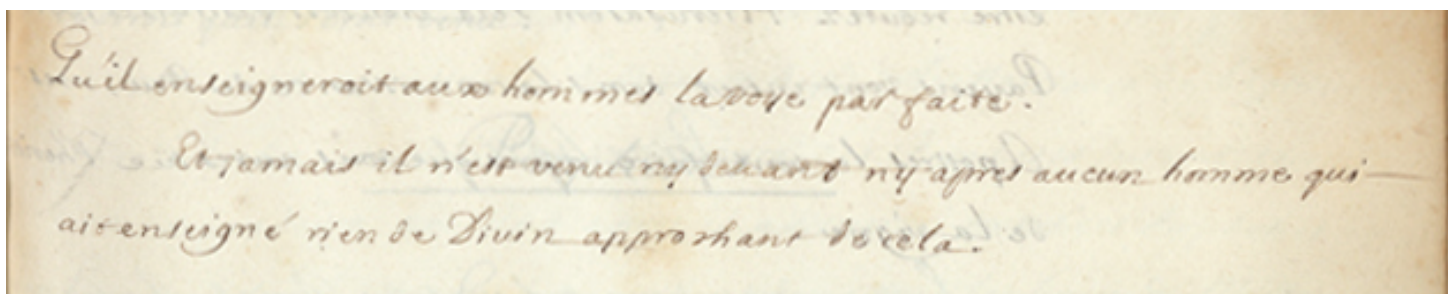 Qu'il enseigneroit aux hommes la voye parfaite.
Et jamais il n'est venu ny devant ny apres aucun homme qui
ait enseigné rien de Divin approchant de cela.